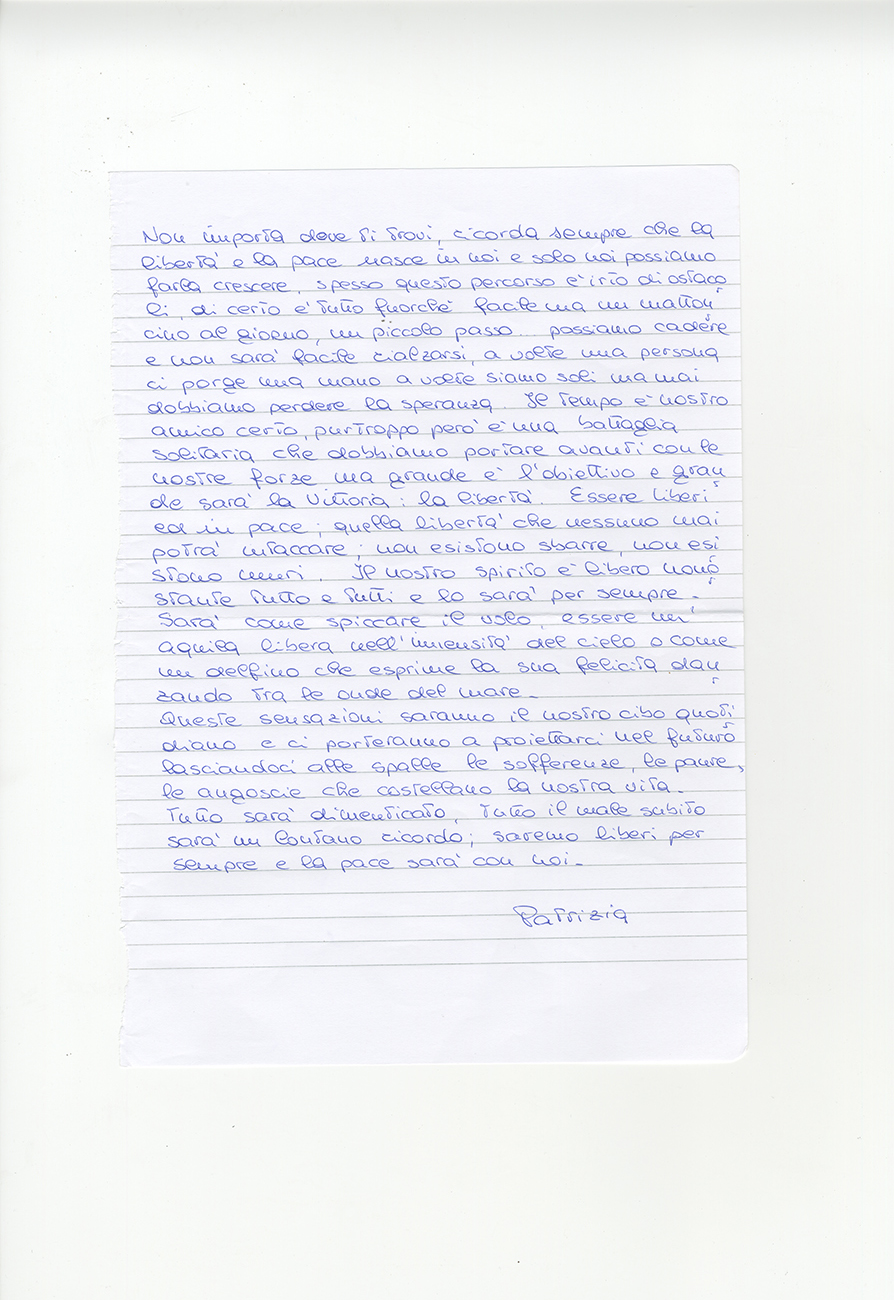 Non importa dove ti trovi, ricorda sempre che la
libertà e la pace nasce in noi e solo noi possiamo
farla crescere, spesso questo percorso è irto di ostaco
li, di certo è tutto fuorchè facile ma un matton
cino al giorno, un piccolo passo... possiamo cadere
e non sarà facile rialzarsi, a volte una persona
ci porge una mano a volte siamo soli ma mai
dobbiamo perdere la speranza. Il tempo è nostro
amico certo, purtroppo però è una battaglia
solitaria che dobbiamo portare avanti con le
nostre forze ma grande è l'obiettivo e gran
de sarà la vittoria: la libertà. Essere liberi
ed in pace; quella libertà che nessuno mai
potrà intaccare; non esistono sbarre, non esi
stono muri. Il nostro spirito è libero nono
stante tutto e tutti e lo sarà per sempre.
Sarà come spiccare il volo, essere un'
aquila libera nell'immensità del cielo o come
un delfino che esprime la sua felicità dan
zando tra le onde del mare.
Queste sensazioni saranno il nostro cibo quoti
diano e ci porteranno a proiettarci nel futuro
lasciandoci alle spalle le sofferenze, le paure,
le angoscie che costellano la nostra vita.
Tutto sarà dimenticato, tutto il male subito
sarà un lontano ricordo; saremo liberi per
sempre e la pace sarà con noi.
Patrizia